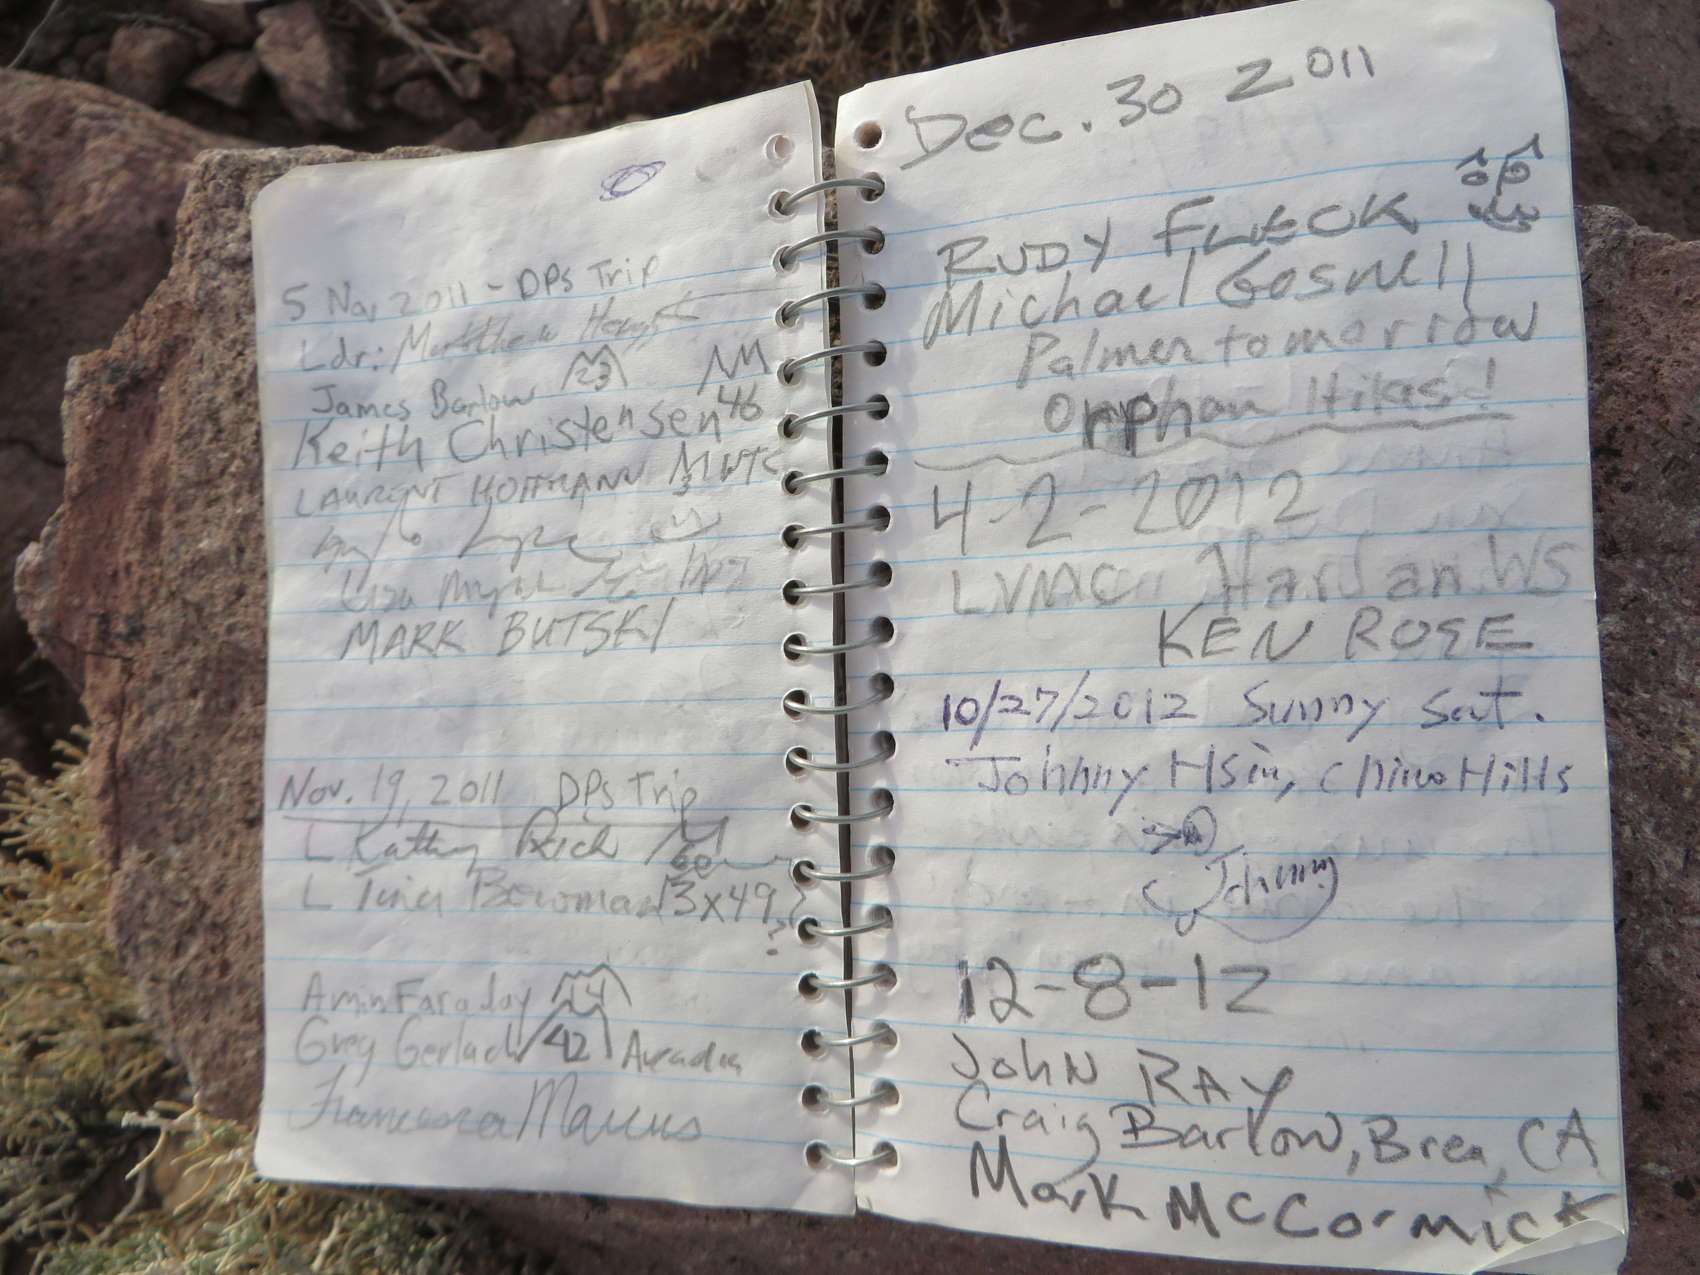 5 Nov 2011 - DPS Trip
Ldr: Matthew
James Barlow 23
46
Keith Christensen
LAURENT HOFFMANN
Lisa
MARK BUTSKI
Nov. 19, 2011 DPS Trip
L Kathy Rich 60
L Tina Bowman 3x49
?
Amin Faraday 14
Greg Gerlach 42 Arcadia
Francesca Marcus
Dec. 30 2011
RUDY FLECK
Michael Gosnell
Palmer tomorrow
Orphan Hikes!
4-2-2012
LVMC Harlan WS
KEN ROSE
10/27/2012 Sunny Sat.
Johnny Hsin, Chino Hills
Johnny
12-8-12
JOHN RAY
Craig Barlow, Brea, CA
Mark McCormick